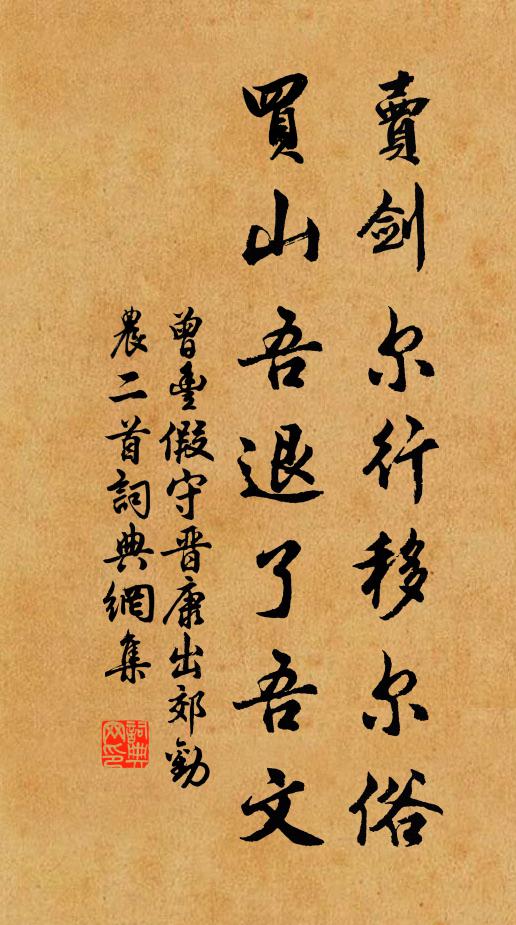 賣剑尔行移尔俗
買山吾退了吾文
曾豊假守晋康出郊勸
農二首詞典網集
詞典
网印